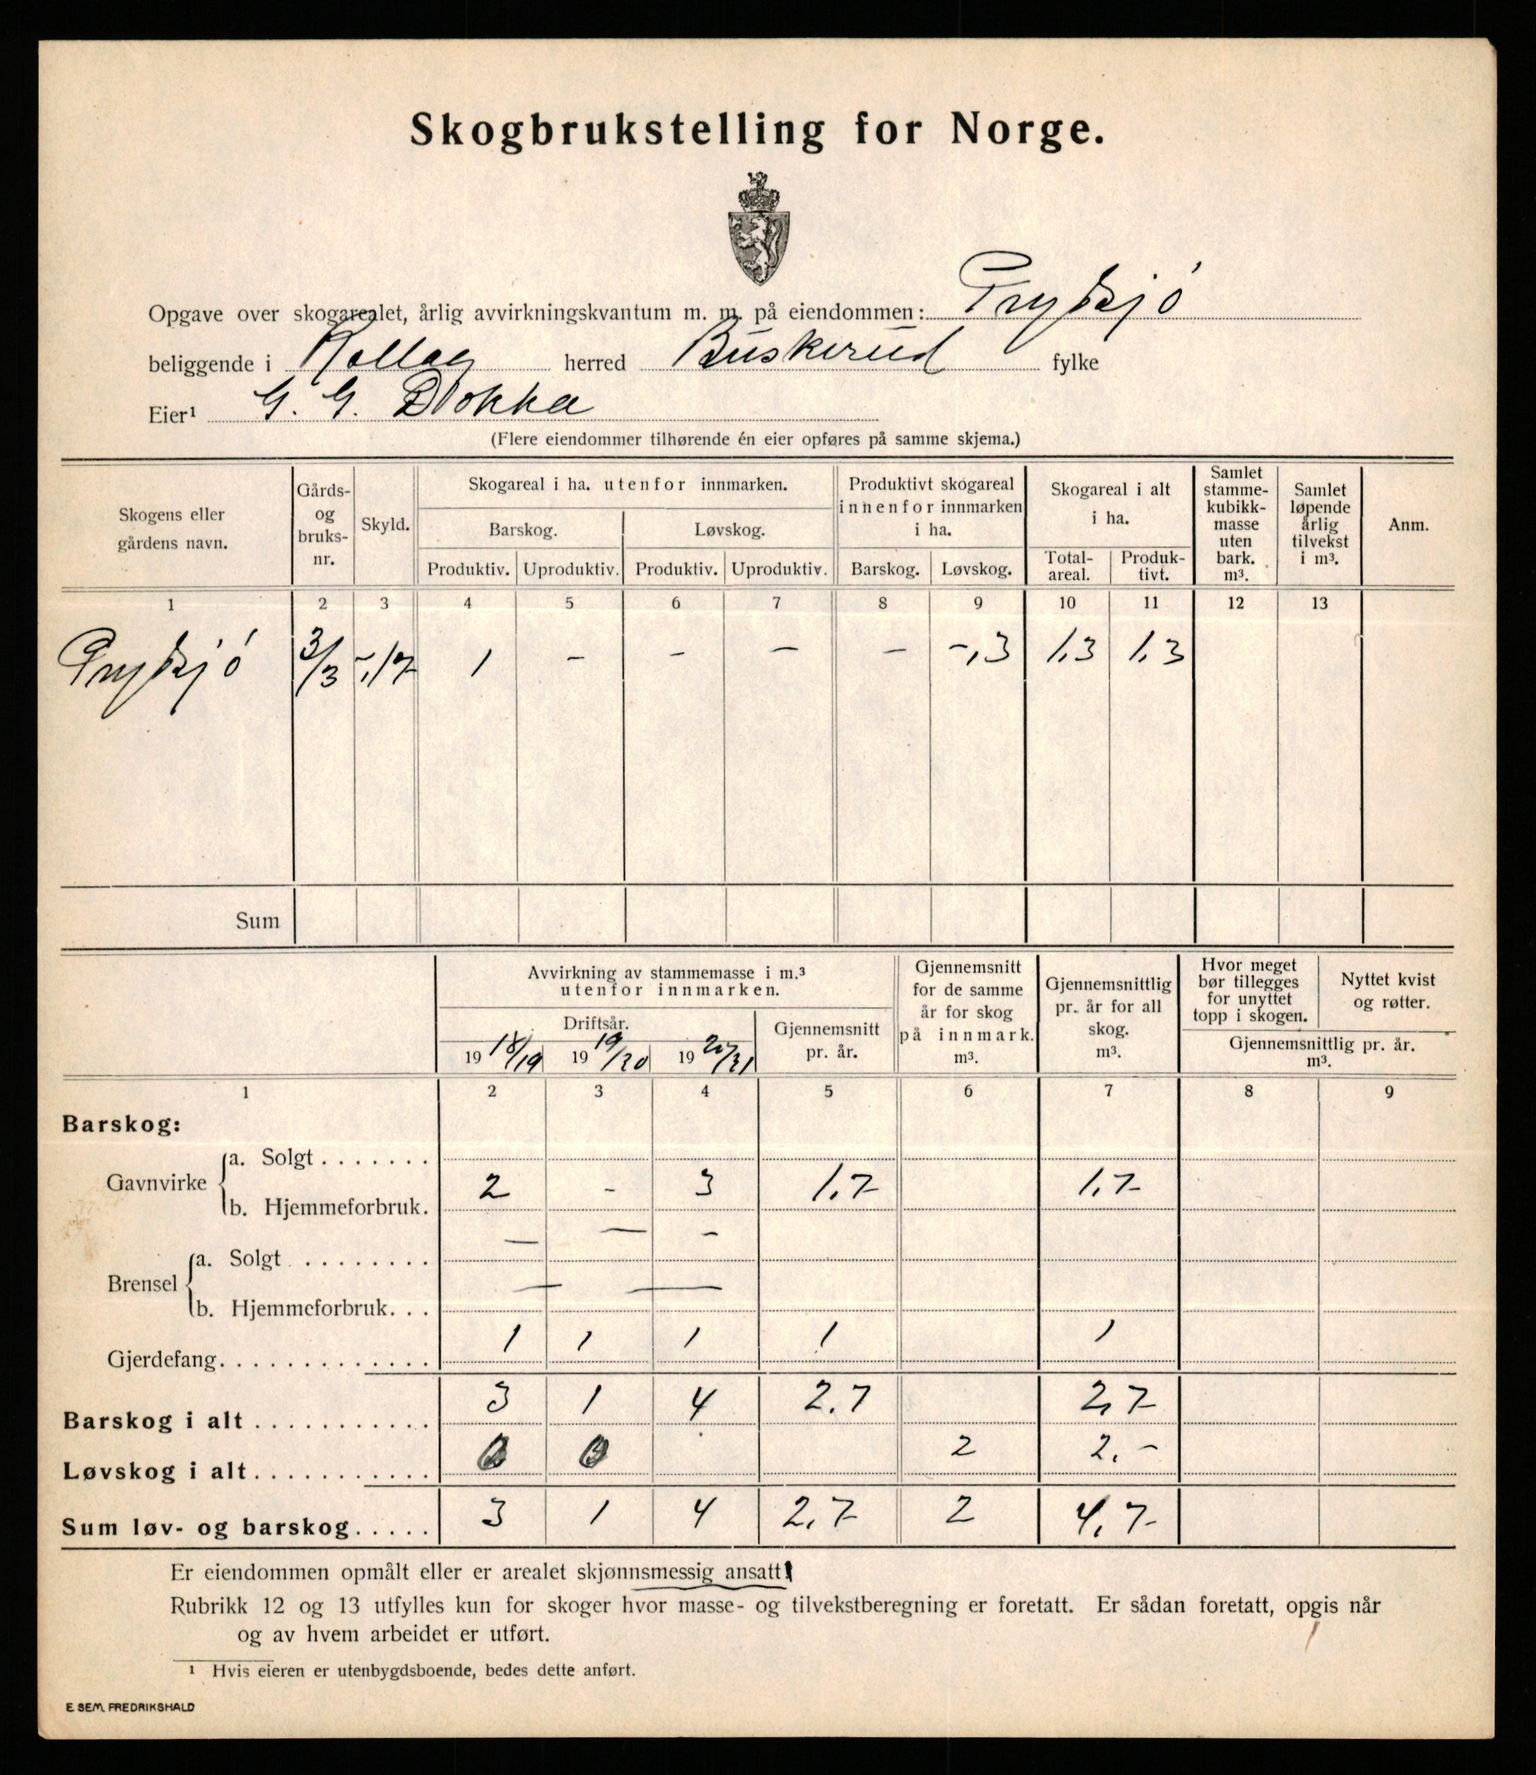 Skogbrukstelling for Norge.
Opgave over skogarealet, årlig avvirkningskvantum m. m. på eiendommen:
beliggende i Rollag herred Buskerud fylke
Eier¹ G. G. Blokka
(Flere eiendommer tilhørende én eier opføres på samme skjema.)
Skogens eller
gårdens navn.
Gårds-
og
bruks-
nr.
Skyld.
Skogareal i ha. utenfor innmarken.
Barskog. Løvskog.
Produktiv. Uproduktiv. Produktiv. Uproduktiv.
Produktivt skogareal
innenfor innmarken
i ha.
Barskog. Løvskog.
Skogareal i alt
i ha.
Total-
areal.
Produk-
tivt.
Samlet
stamme-
kubikk-
masse
uten
bark.
m³.
Samlet
løpende
årlig
tilvekst
i m³.
Anm.
1 2 3 4 5 6 7 8 9 10 11 12 13
3/3 -,17 1 - - - - -,3 1,3 1,3
Sum
Avvirkning av stammemasse i m.³
utenfor innmarken.
Driftsår.
1918/19 1919/20 1920/21
Gjennemsnitt
pr. år.
Gjennemsnitt
for de samme
år for skog
på innmark.
m³.
Gjennemsnittlig
pr. år for all
skog.
m³.
Hvor meget
bør tillegges
for unyttet
topp i skogen.
Nyttet kvist
og røtter.
Gjennemsnittlig pr. år.
m³.
1 2 3 4 5 6 7 8 9
Barskog:
Gavnvirke
a. Solgt . . . . . . .
2 - 3 1,7 1,7
b. Hjemmeforbruk.
— — -
Brensel
a. Solgt . . . . . . . .
— —
b. Hjemmeforbruk. . .
Gjerdefang. . . . . . . . . . . . . 1 1 1 1 1
Barskog i alt . . . . . . . . . . . 3 1 4 2.7 2,7
Løvskog i alt. . . . . . . . . . . 0 0 2 2.-
Sum løv- og barskog. . . . . 3 1 4 2,7 2 4,7
Er eiendommen opmålt eller er arealet skjønnsmessig ansatt
Rubrikk 12 og 13 utfylles kun for skoger hvor masse- og tilvekstberegning er foretatt. Er sådan foretatt, opgis når
og av hvem arbeidet er utført.
¹ Hvis eieren er utenbygdsboende, bedes dette anført.
E. SEM, FREDRIKSHALD